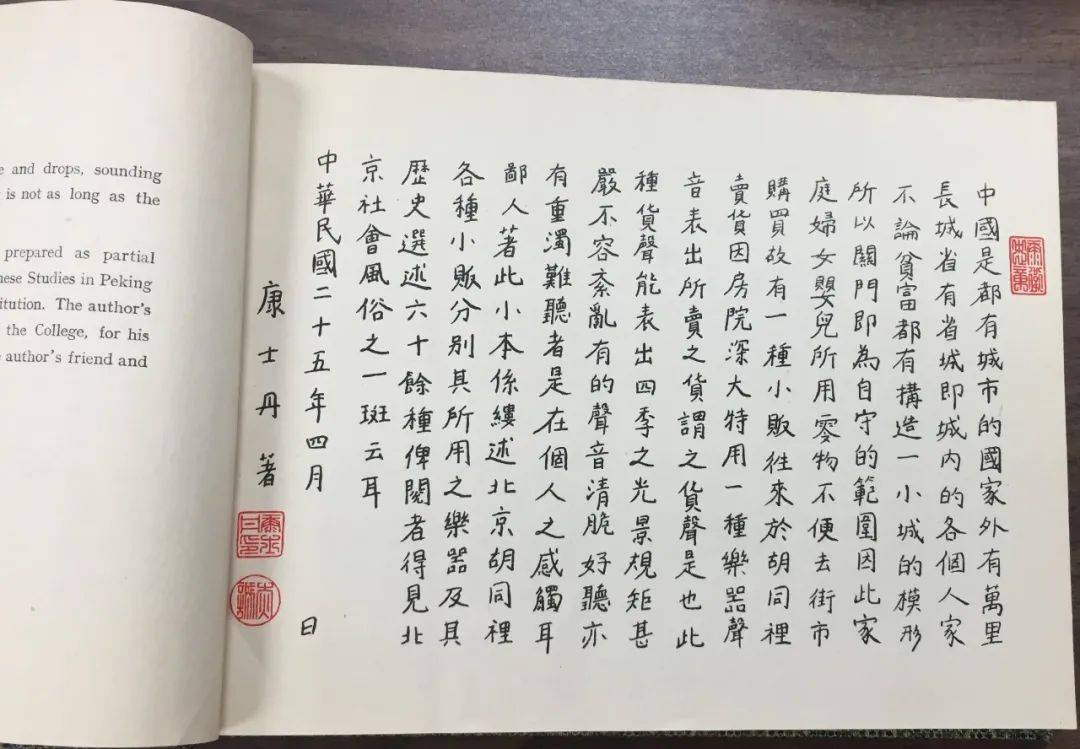 e and drops, sounding
is not as long as the
prepared as partial
nese Studies in Peking
titution. The author's
the College, for his
author's friend and
中國是都有城市的國家外有萬里
長城省有省城即城內的各個人家
不論貧富都有搆造一小城的模形
所以關門即為自守的範圍因此家
庭婦女嬰兒所用零物不便去街市
購買故有一種小販往來於胡同裡
賣貨因房院深大特用一種樂器聲
音表出所賣之貨謂之貨聲是也此
種貨聲能表出四季之光景規矩甚
嚴不容紊亂有的聲音清脆好聽亦
有重濁難聽者是在個人之感觸耳
鄙人著此小本係縷述北京胡同裡
各種小販分別其所用之樂器及其
歷史選述六十餘種俾閱者得見北
京社會風俗之一斑云耳
中華民國二十五年四月 日
康士丹著